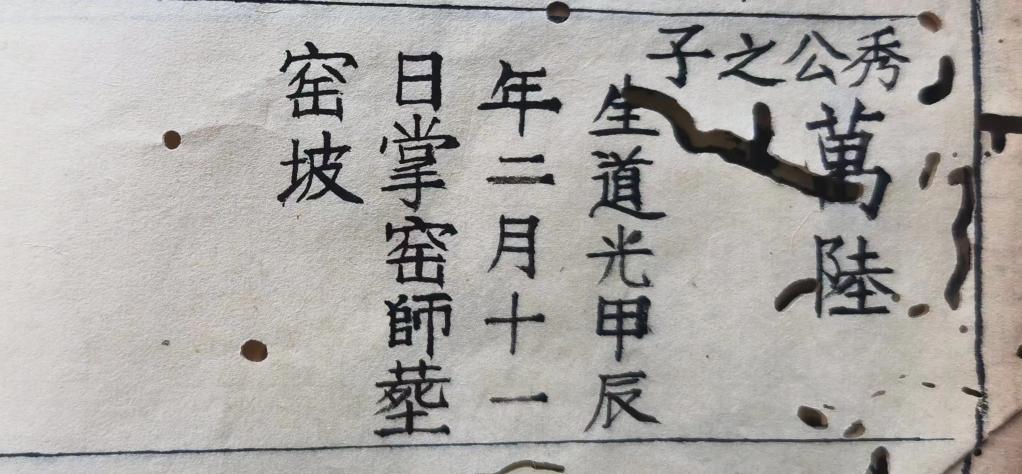 秀公之子
萬陸
生道光甲辰
年二月十一
日掌窑師塟
窑坡